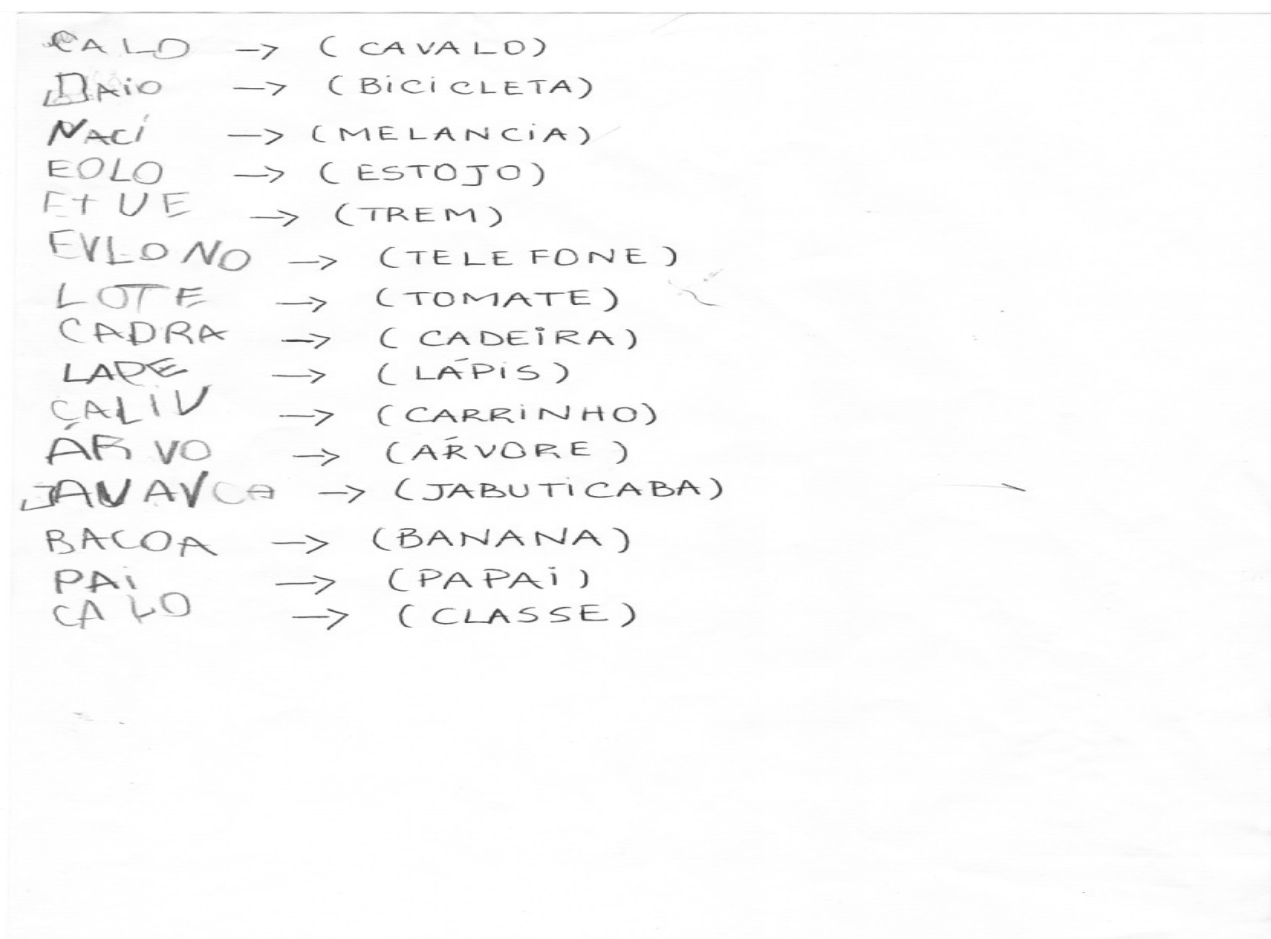 CALO -> (CAVALO)
-> (BiCiCLETA)
NACi -> (MELANCiA)
EOLO -> (ESTOJO)
EtUE -> (TREM)
EVLONO -> (TELEFONE)
LOTE -> (TOMATE)
CADRA -> (CADEiRA)
LAPE -> (LÁPiS)
CALIV -> (CARRiNHO)
ÁRVO -> (ÁRVORE)
JAVAVCA -> (JABUTiCABA)
BACOA -> (BANANA)
PAi -> (PAPAi)
CALO -> (CLASSE)